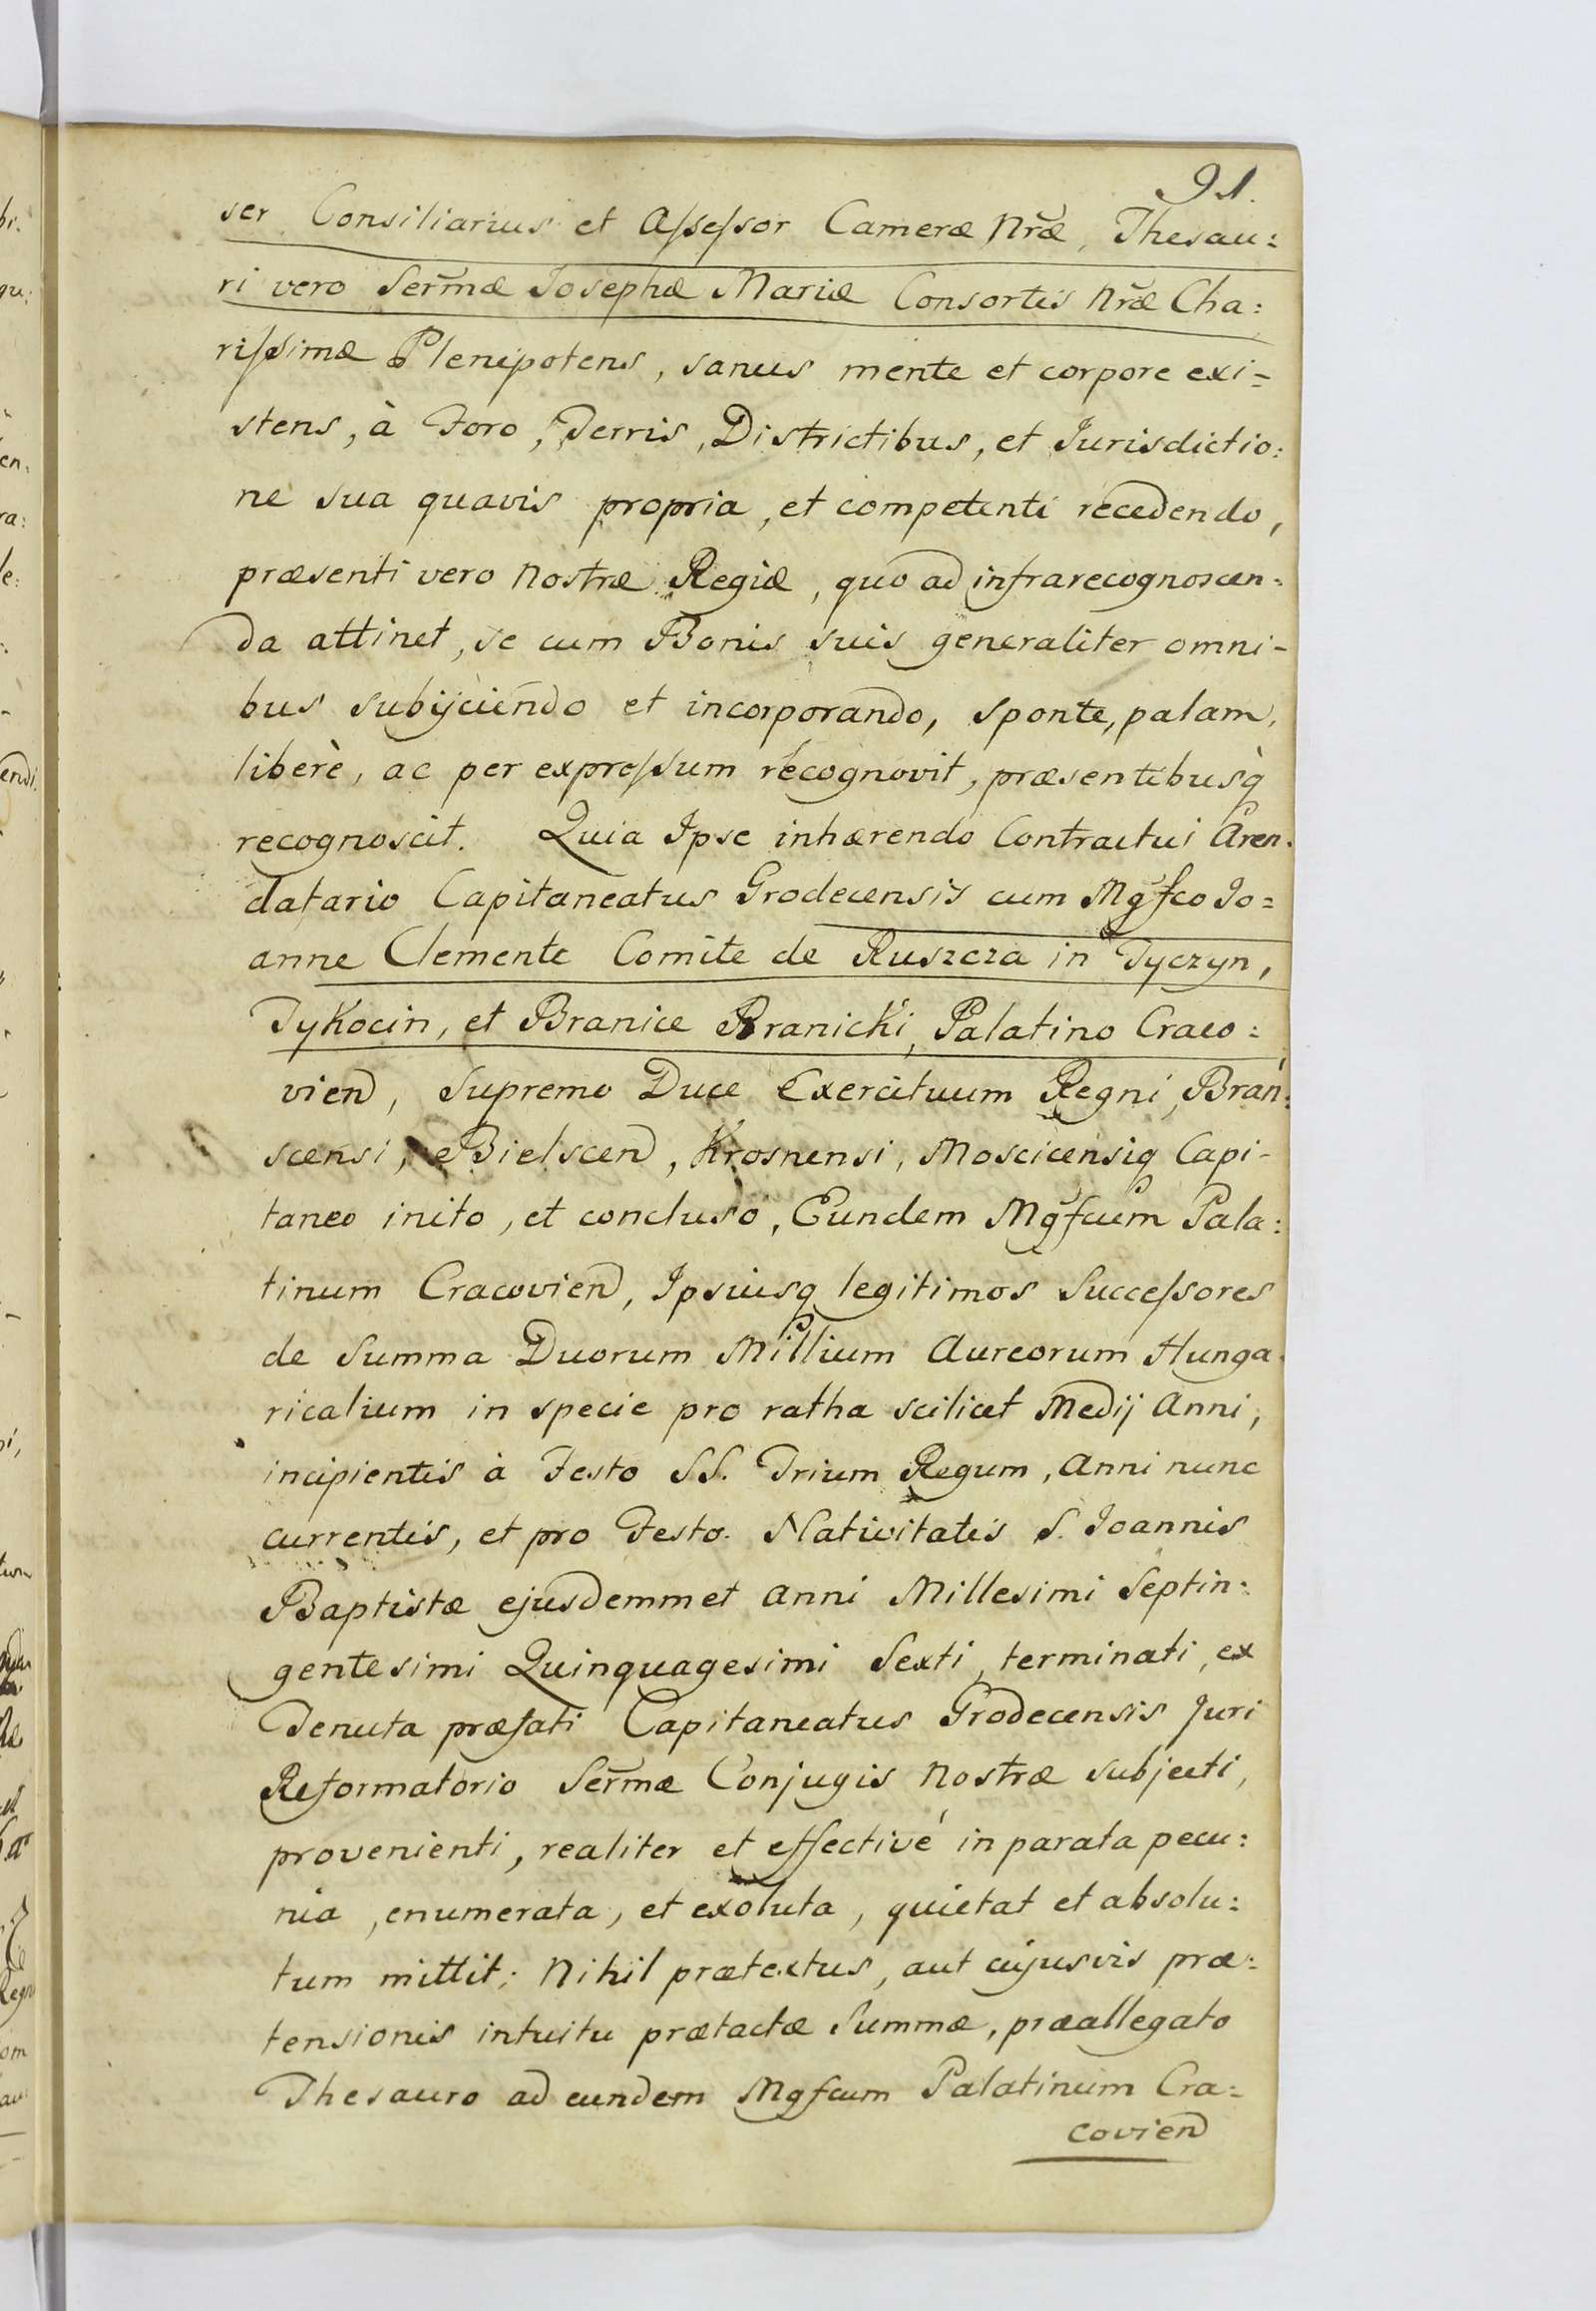 91.
ser Consiliarius et Aſseſsor Cameræ Nr̃æ, Thesau:
ri vero Serm̃æ Josephæ Mariæ Consortis Nr̃æ Cha:
riſsimæ Plenipotens, sanus mente et corpore exi-
stens, à Foro, Terris, Districtibus, et Jurisdictio:
ne sua quavis propria, et competenti recedendo,
præsenti vero Nostræ Regiæ, quo ad infrarecognoscen-
da attinet, se cum Bonis suis generaliter omni-
bus subijciendo et incorporando, sponte, palam,
liberè, ac per expreſsum recognovit, præsentibusq̀
recognoscit. Quia Ipse inhærendo Contractui Aren:
datario Capitaneatus Grodecensis cum Mg̃fco Jo=
anne Clemente Comite de Ruszcza in Tyczyn,
Tykocin, et Branice Branicki, Palatino Craco:
vien, Supremo Duce Exercituum Regni, Brań:
scensi, Bielscen, Krosnensi, Moscicensiq Capi-
taneo inito, et concluso, Eundem Mg̃fcum Pala:
tinum Cracovien, Ipsiusq legitimos Succeſsores
de Summa Duorum Millium Aureorum Hunga:
ricalium in specie pro ratha scilicet Medij Anni,
incipientis à Festo SS. Trium Regum, Anni nunc
currentis, et pro Festo Nativitatis S. Joannis
Baptistæ ejusdemmet Anni Millesimi Septin:
gentesimi Quinquagesimi Sexti, terminati, ex
Tenuta præfati Capitaneatus Grodecensis Juri
Reformatorio Serm̃æ Conjugis Nostræ subjecti,
provenienti, realiter et effectivé in parata pecu:
nia, enumerata, et exoluta, quietat et absolu:
tum mittit; Nihil prætextus, aut cujusvis præ:
tensionis intuitu prætactæ Summæ, præallegato
Thesauro ad eundem Mgfcum Palatinum Cra=
covien